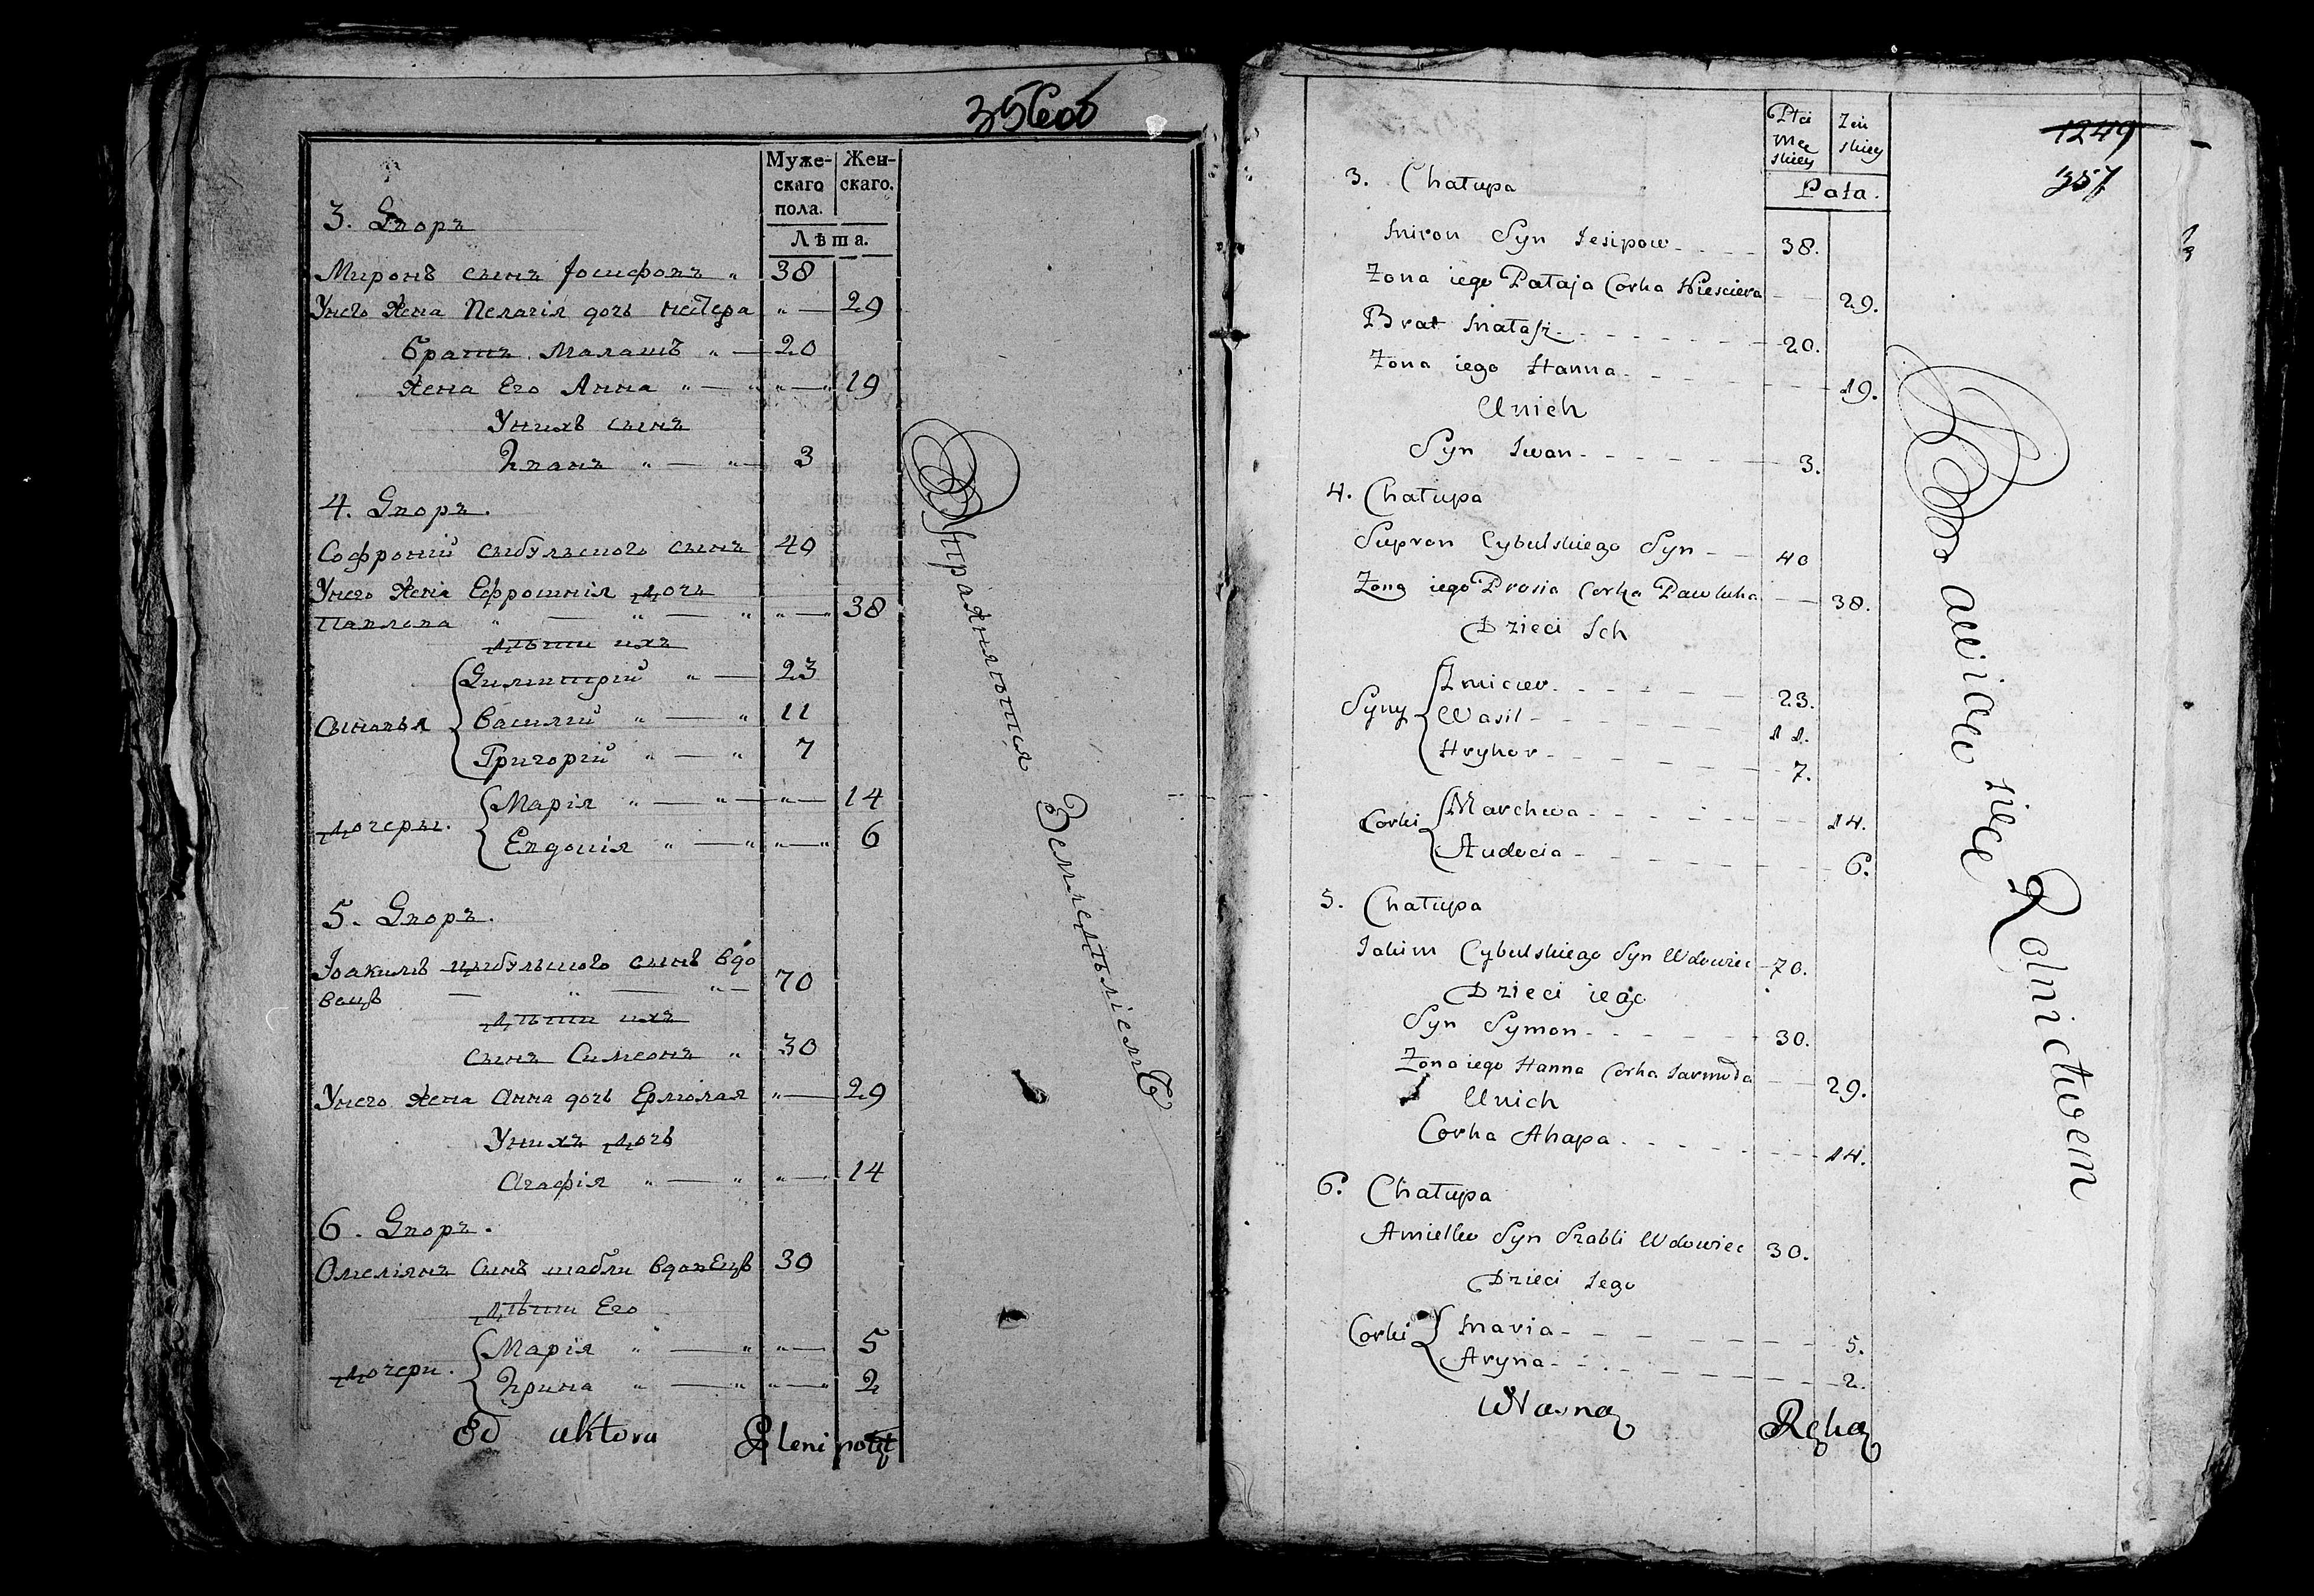 356об
Муже- Жен-
скаго скаго.
пола.
Лѣта.
3. Дворъ
Миронъ сынъ Іосифовъ 38
Унего жена Пелагія дочь нестера 29
братъ Малашъ 20
жена Его Анна 19
Унихъ сынъ
Иванъ 3
4. Дворъ.
Софроній сыбульского сынъ 40
Унего жена Ефросинія дочь
Павлова 38
дѣти ихъ
Сыновья
Димитрій 23
Василій 11
Григорій 7
дочеры.
Марія 14
Евдокія 6
5. Дворъ.
Іоакимъ цыбульского сынъ вдо
вецъ 70
дѣти ихъ
сынъ Симеонъ 30
Унего жена Анна дочь Ермолая 29
Унихъ дочь
Агафія 14
6. Дворъ.
Омеліянъ сынъ шабли вдовецъ 30
дѣти Его
дочери.
Марія 5
Ирина 2
Упражняются Земледѣліемъ
Od aktora Plenipotęt
Płci Żeń
Męz skiey
skiey
Lata.
1249
357
3. Chałupa
Miron Syn Jesipow 38.
Zona iego Pałaja Corka Niesciera 29.
Brat Małasz 20.
Zona iego Hanna 19.
Unich
Syn Iwan 3.
4. Chałupa
Supron Cybulskiego Syn 40
Zona iego Prosia Corka Pawluka 38.
Dzieci Ich
Syny
Zmicier 23.
Wasil 11.
Hryhor 7.
Corki
Marchwa 14.
Audocia 6.
5. Chałupa
Iakim Cybulskiego Syn Wdowiec 70.
Dzieci iego
Syn Symon 30.
Zona iego Hanna Corka Jarmoła 29.
Unich
Corka Ahapa 14.
6. Chałupa
Amielko Syn Szabli Wdowiec 30.
Dzieci Jego
Corki
Maria 5.
Aryna 2.
Bawiąw się Rolnictwem
Własną Ręką